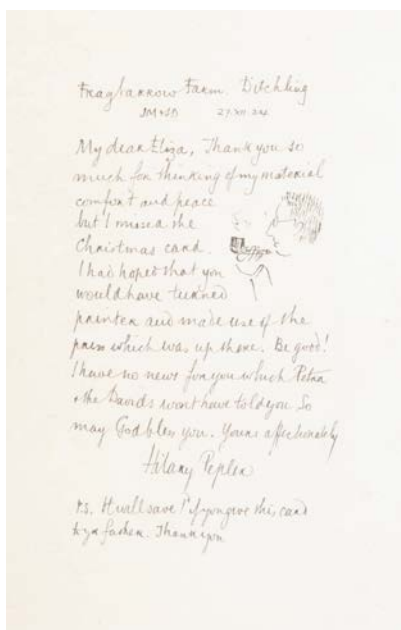 Fragbarrow Farm. Ditchling
27.XII
My dear Eliza, Thank you so
much for thinking of my material
comfort and peace
but I missed the
Christmas card.
I had hoped that you
would have turned
painter and made use of the
which was up there. Be good!
I have no news for you which Petra
& the Davids wont have told you. So
may God bless you. Yours affectionately
Hilary Pepler
P.S. It will save if you give this card
to yr father. Thank you